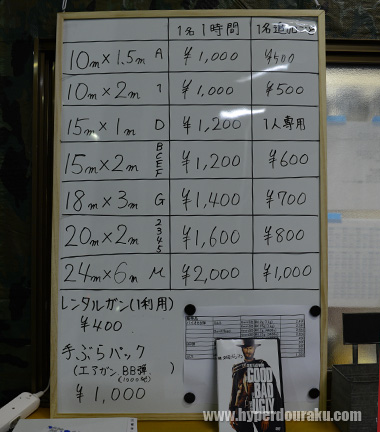 1名1時間 1名追加
10m×1.5m A ¥1,000 ¥500
10m×2m 1 ¥1,000 ¥500
15m×1m D ¥1,200 1人専用
15m×2m B C E F ¥1,200 ¥600
18m×3m G ¥1,400 ¥700
20m×2m 2 3 4 5 ¥1,600 ¥800
24m×6m M ¥2,000 ¥1,000
レンタルガン(1利用)
¥400
手ぶらパック
(エアガン、BB弾)
¥1,000
GOOD
BAD
UGLY
www.hyperdouraku.com